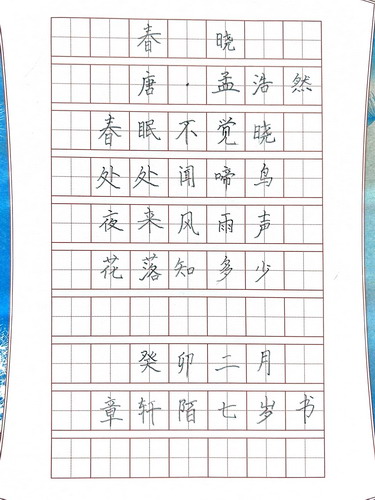 春晓
唐·孟浩然
春眠不觉晓
处处闻啼鸟
夜来风雨声
花落知多少
癸卯二月
章轩陌七岁书